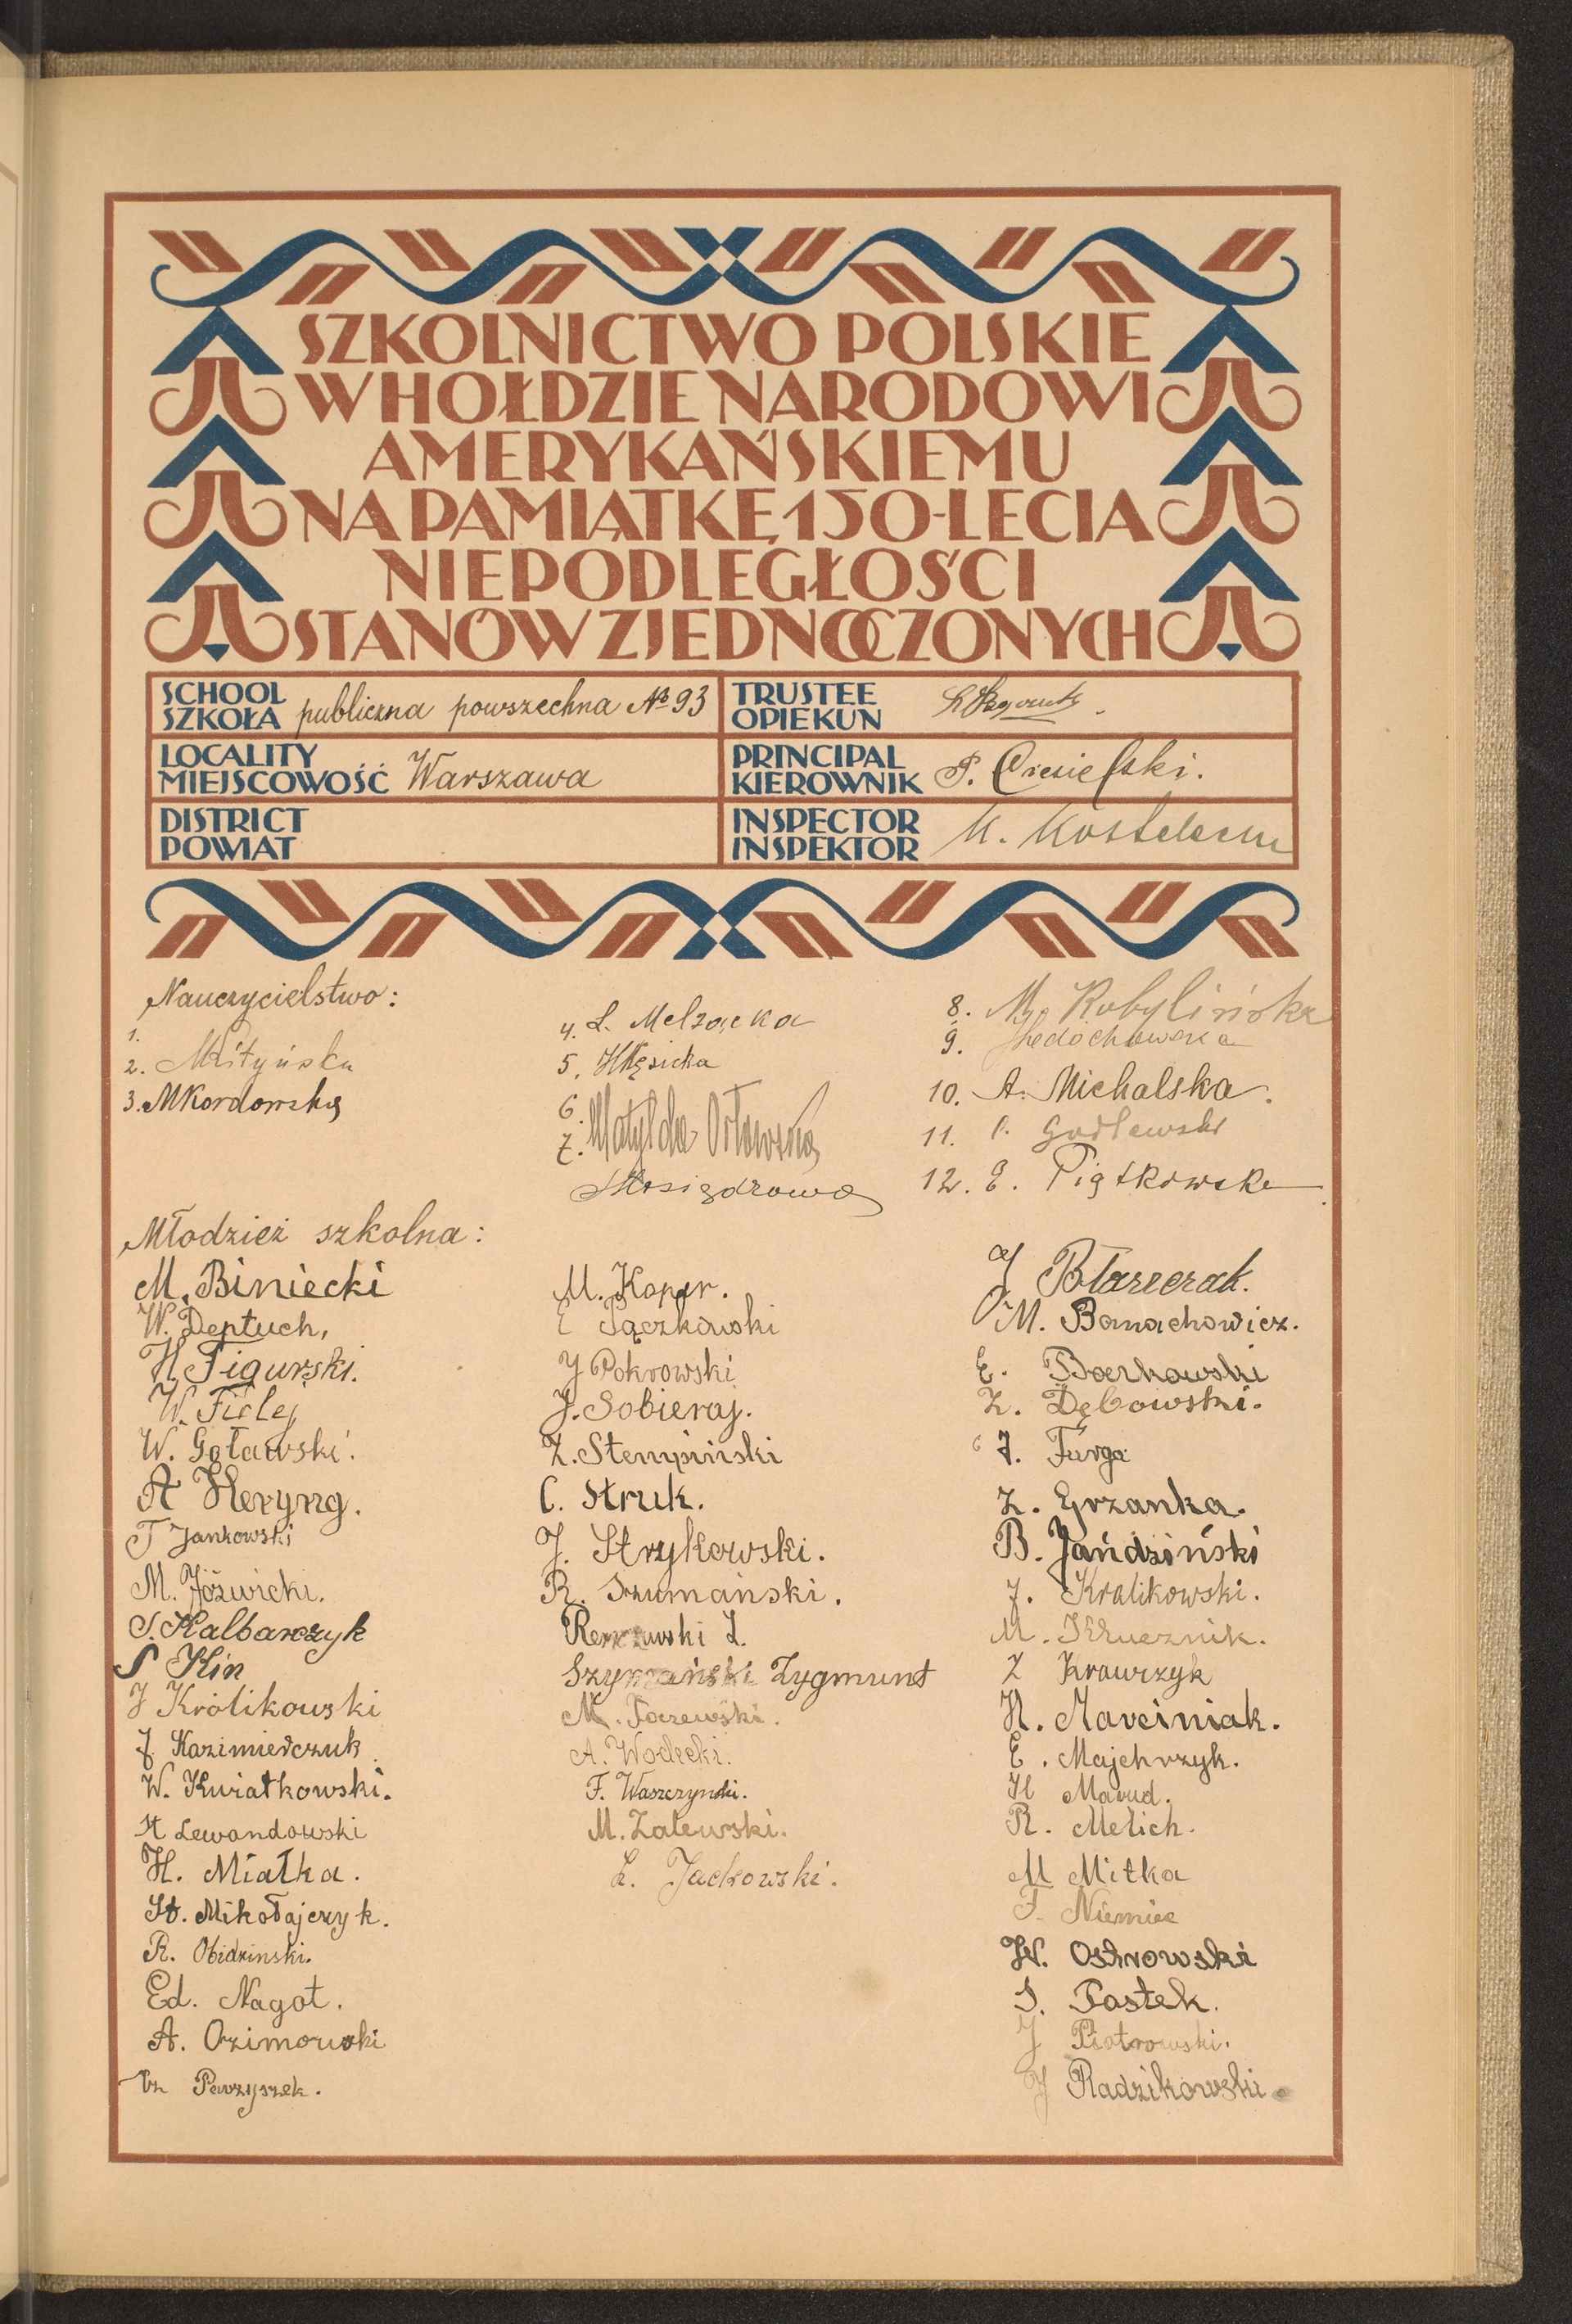 SZKOLNICTWO POLSKIE
W HOŁDZIE NARODOWI
AMERYKAŃSKIEMU
NA PAMIĄTKĘ 150-LECIA
NIEPODLEGŁOŚCI
STANÓW ZJEDNOCZONYCH
SCHOOL
SZKOŁA publiczna powszechna № 93
TRUSTEE
OPIEKUN
LOCALITY
MIEJSCOWOŚĆ Warszawa
PRINCIPAL
KIEROWNIK P. Ciesielski.
DISTRICT
POWIAT
INSPECTOR
INSPEKTOR K.
Nauczycielstwo:
1.
2.
3. M Kordowska
4. L. Melzacka
5. H Kęsicka
6.
7. Matylda Orłowska
8. M. Kobylińska
9. Ledóchowska
10. A. Michalska.
11. Godlewski
12. E. Piątkowska
Młodzież szkolna:
M. Biniecki
W. Deptuch,
H. Figurski.
W. Fielej
W. Goławski.
A Heryng.
T Jankowski
M. Jóźwicki.
S. Kalbarczyk
S Klin
J Królikowski
J. Kazimierczuk
W. Kwiatkowski.
St Lewandowski
H. Miałka.
St. Mikołajczyk.
R. Obidzinski.
Ed. Nagot.
A. Ozimowski
Cz Parzyszek.
M. Koper.
E Pączkowski
J Pokrowski
J. Sobieraj.
Z. Stempiński
C. Struk.
J. Strykowski.
R. Szumański.
Szymański Zygmunt
M. Toczewski.
A. Wodecki.
F. Waszczynski.
M. Zalewski.
L. Jackowski.
J Błaszczak.
M. Bomachowicz.
E. Borkowski
Z. Dębowski.
J. Furga
Z. Grzanka.
B. Jańdziński
J. Kralikowski.
M. Kłucznik.
Z Krawczyk
H. Marciniak.
E. Majchrzyk.
H Marud.
R. Melich.
M Mitka
F. Niemiec
W. Ostrowski
S. Pastek.
J Piotrowski.
J Radzikowski